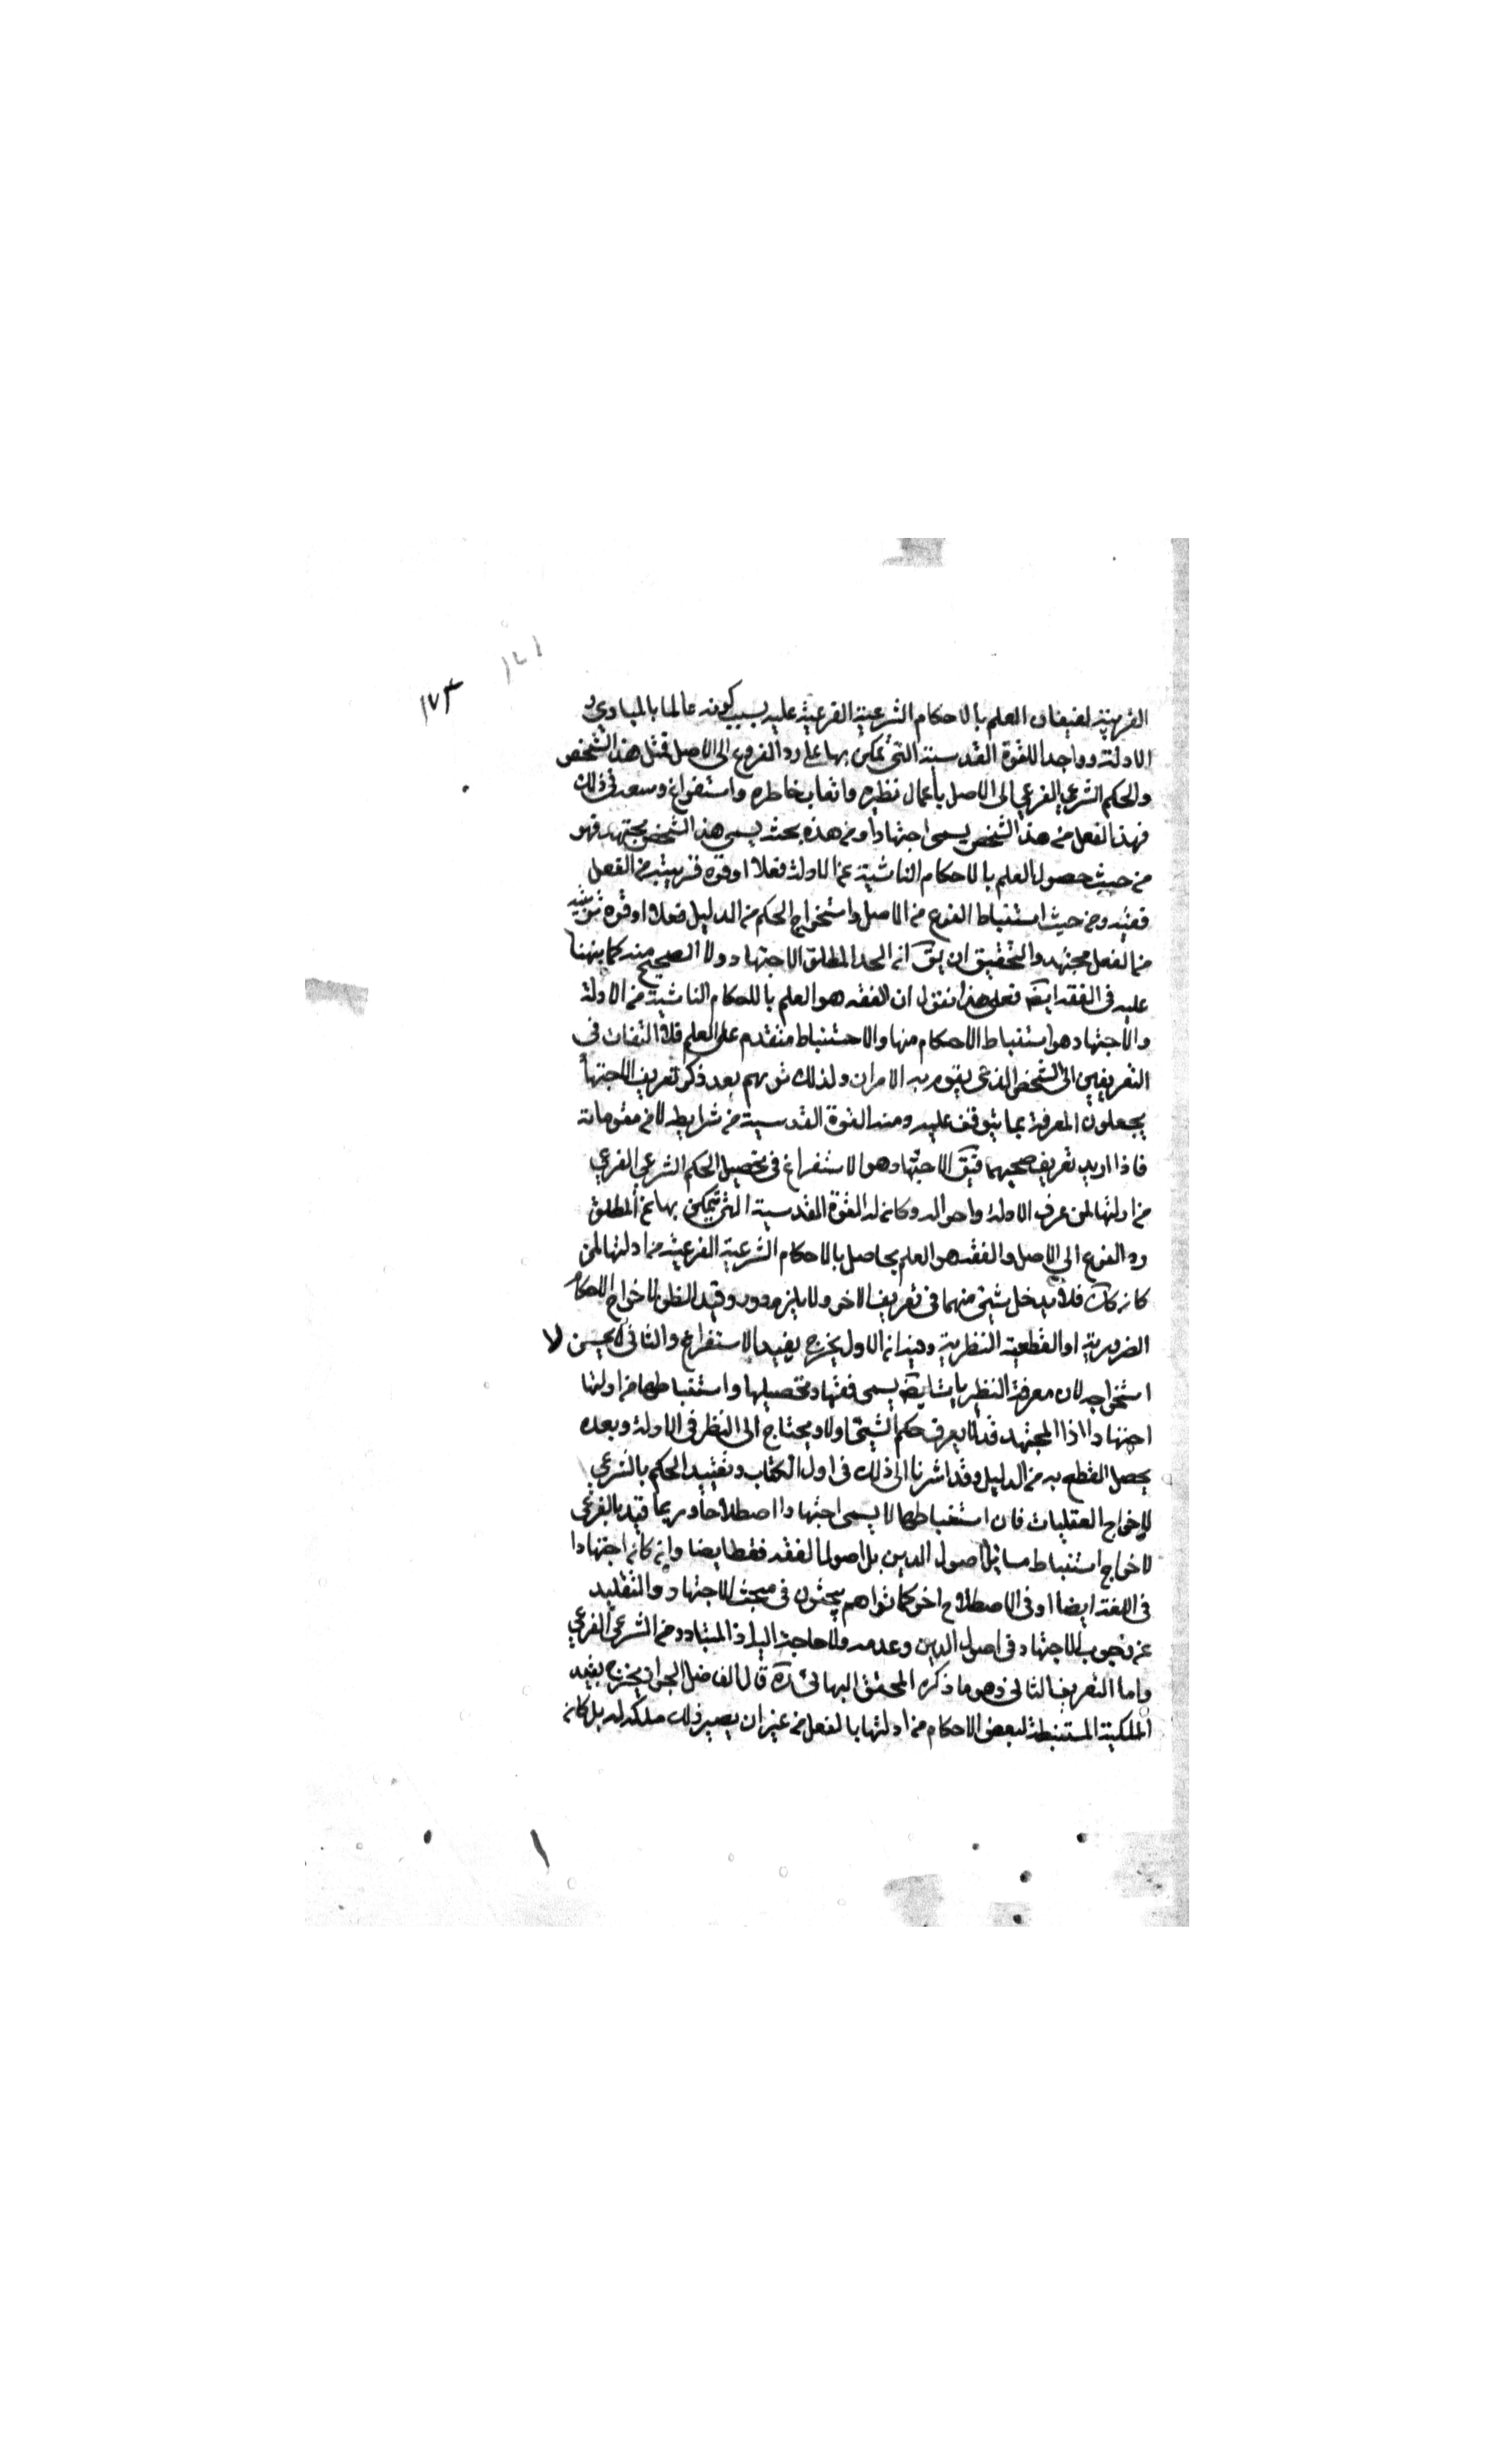 ١٧٣
القريبة لفيضان العلم بالاحكام الشرعية الفرعية عليه بسبب كونه عالما بالمبادي و
الادلة وواجد اللقوة القدسية التي تمكن بها على رد الفروع الى الاصل فمثل هذا الشخص
والحكم الشرعي الفرعي الى الاصل بأعمال نظيره واتعاب خاطره واستفراغ وسعه في ذلك
فهذا لفعل من هذا الشخص يسمى اجتهادا ومن هذه بحثه يسمى هذا الشخص مجتهد فهو
من حيث حصول العلم بالاحكام الناشية عن الادلة فعلا اوقوة قريبة من الفعل
فقيه ومن حيث استنباط الفرع من الاصل واستخراج الحكم من الدليل فعلا اوقوة
من الفعل مجتهد والتحقيق ان يق انه الحد المطلق الاجتهاد ولا الصحيح منه كما بينهنا
عليه في الفقه ايضه فعلى هذا نقول ان الفقه هو العلم باللحكام الناشية من الادلة
والاجتهاد هو استنباط الاحكام منها والاحتنباط متقدم على العلم فلا التفات في
التعريفين الى الشخص الذي يقوم به الامران ولذلك تريهم بعد ذكر تعريف الاجتها
يجعلون المعرفة بما يتوقف عليه ومنه القوة القدسية من شرايطه لا من مقوماته
فاذا اريد تعريف صحيهما فيق الاجتهاد هو الاستفراغ في تحصيل الحكم الشرعي الفرعي
من ادلتها لمن عرف الادلة واحواله وكان له القوة القدسية التي تتمكن بها عن المطلق
رد الفرع الى الاصل والفقه هو العلم بحاصل بالاحكام الشرعية الفرعية من ادلتها لمن
كانه كك فلا يدخل شيئ منهما في تعريف الاخر ولا يلزم دور وقيد الظن لاخراج الاحكام
الضرورية او القطعية النظرية وفيه انه الاول يخرج بقيد الاستفراغ والثاني لا يحسن لا
استخراجه لان معرفة النظريات ايضه يسمى فقها وتحصيلها واستنباطها من ادلتها
اجتهادا اذا المجتهد قد لا يعرف حكم الشيئ اولا ويحتاج الى النظر في الادلة وبعده
يحصل القطع به من الدليل وقد اشرنا الى ذلك في اول الكتاب وتقييد الحكم بالشرعي
لاخراج العقليات فان استنباطها لا يسمى اجتهادا اصطلاحا وربما قيد بالفرعي
لاخراج استنباط مسائل اصول الدين بل اصول الفقه فقط ايضا وانه كانه اجتهادا
في اللغة ايضا او في الاصطلاح اخر كما تراهم يبحثون في مبحث الاجتهاد والتقليد
عن وجوب الاجتهاد في اصول الدين وعدمه ولا حاجة اليه اذ المتبادر من الشرعي الفرعي
واما التعريف الثاني وهو ما ذكره المحقق البهائي ره قال الفاضل الجواد يخرج بقيد
الملكية المستنبطة لبعض الاحكام من ادلتها بالفعل من غير ان يصير ذلك ملكه له بل كانه